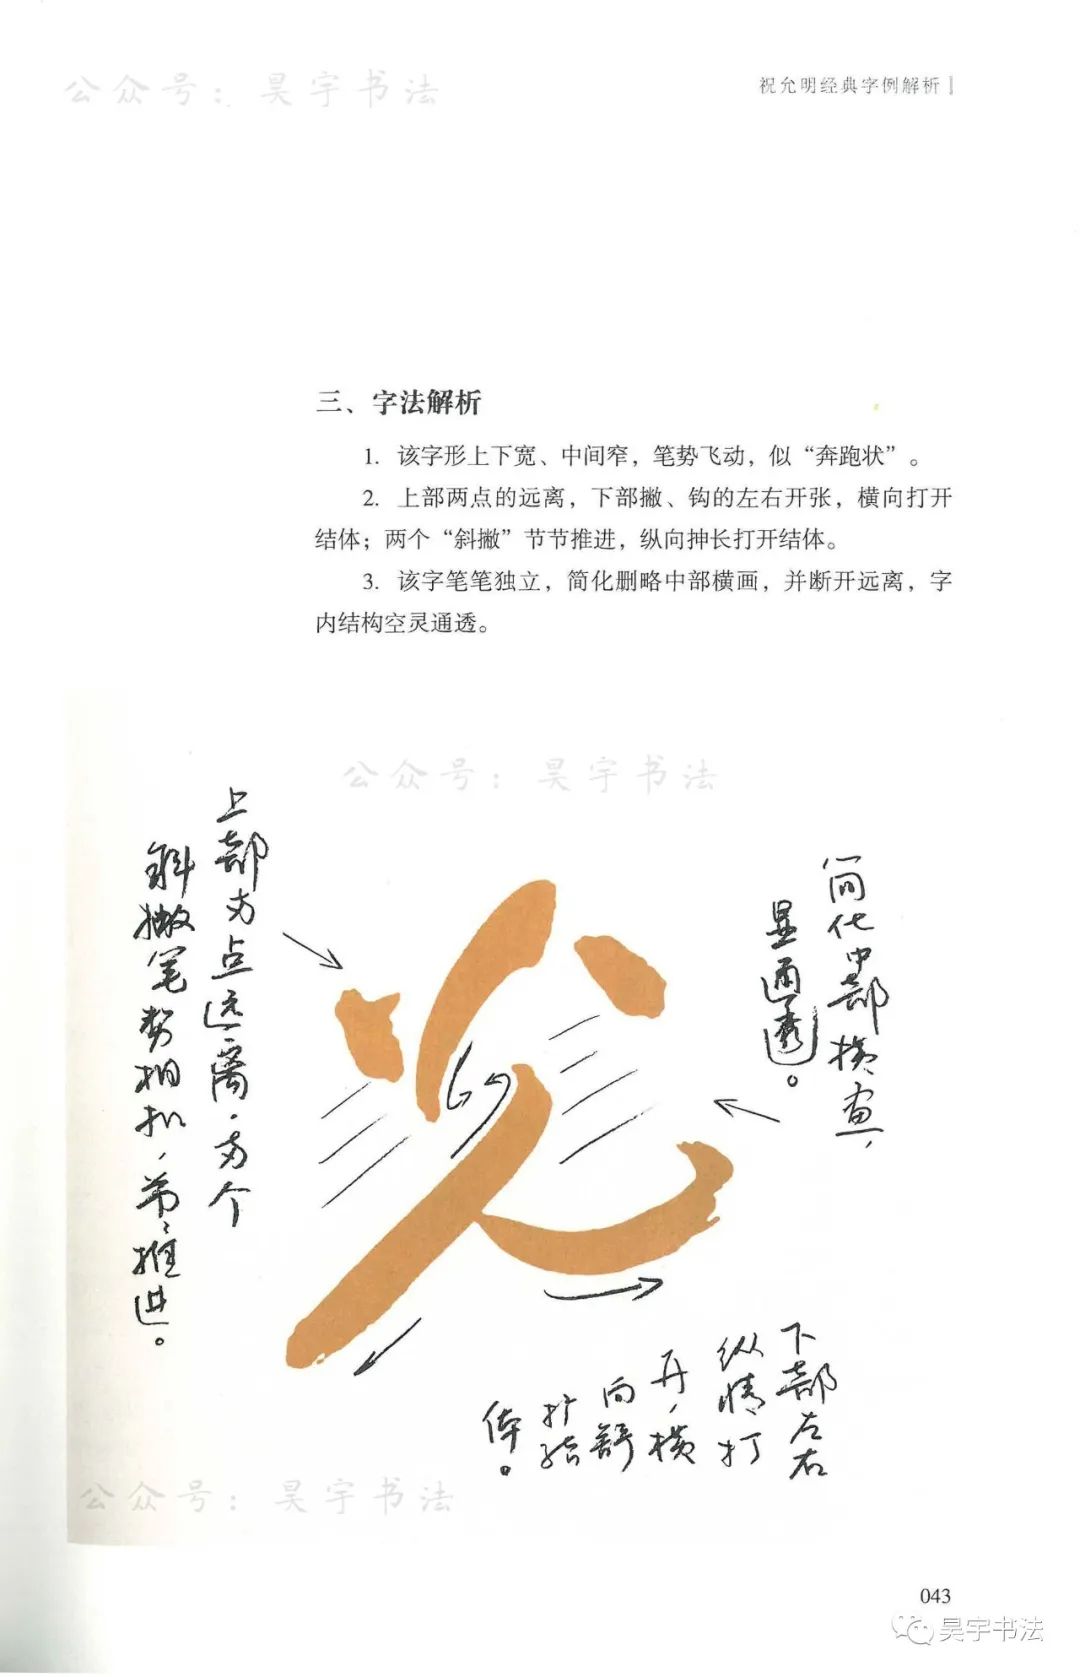 公众号：昊宇书法
祝允明经典字例解析
三、字法解析
1. 该字形上下宽、中间窄，笔势飞动，似“奔跑状”。
2. 上部两点的远离，下部撇、钩的左右开张，横向打开
结体；两个“斜撇”节节推进，纵向抻长打开结体。
3. 该字笔笔独立，简化删略中部横画，并断开远离，字
内结构空灵通透。
公众号：昊宇书法
简化中部横画，
显通透。
上部两点远离，两个
斜撇笔势相扣，节节推进。
光
下部左右
纵情打
开，横
向舒
扩结
体。
公众号：昊宇书法
043
昊宇书法